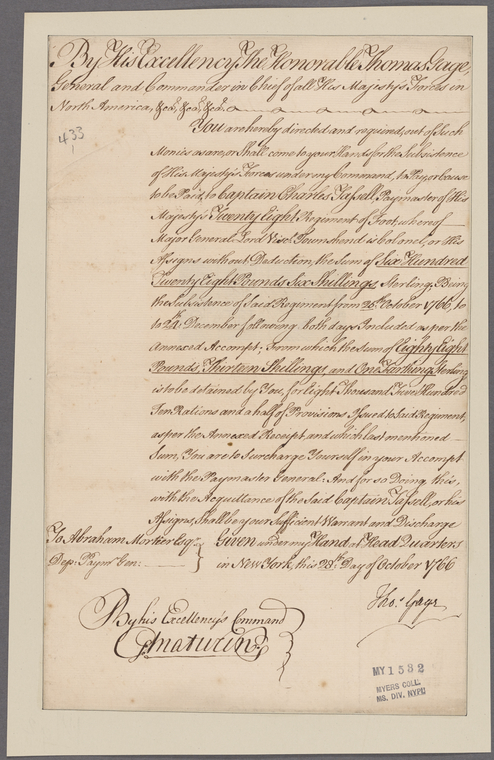 By His Excellency The Honorable Thomas Gage,
General and Commander in Chief of all His Majesty's Forces in
North America, &ca, &ca, &ca.
433
You are hereby directed and required, out of such
Monies as are, or shall come to your Hands for the Subsistence
of His Majesty's Forces under my Command, to Pay, or Cause
to be Paid, to Captain Charles Tassell, Paymaster of His
Majesty's Twenty Eight Regiment of Foot, whereof
Major General Lord Visct. Townshend is Colonel, or His
Assigns without Deduction, the Sum of Six Hundred
Twenty Eight Pounds Six Shillings, Sterling, Being
the Subsistence of Said Regiment from 25th October 1766, to
to 24th December following, both days Included as per the
Annexed Accompt; From which the Sum of Eighty Eight
Pounds, Thirteen Shillings, and One Farthing Sterling
is to be detained by You, for Eight Thousand Two Hundred
Ten Rations and a half of Provisions Issued to Said Regiment,
as per the Annexed Receipt, and which last mentioned
Sum, You are to Surcharge Yourself in your Accompt
with the Paymaster General: And for so Doing this,
with the Acquittance of the Said Captain Tassell, or his
Assigns, shall be your Sufficient Warrant and Discharge
Given under my Hand, at Head Quarters
in New York, this 29th Day of October 1766
To Abraham Mortier Esqr.
Dep: Paymr Gen:
Thos. Gage
By his Excellency's Command
G Maturin
MY 1532
MYERS COLL.
MS. DIV. NYPL